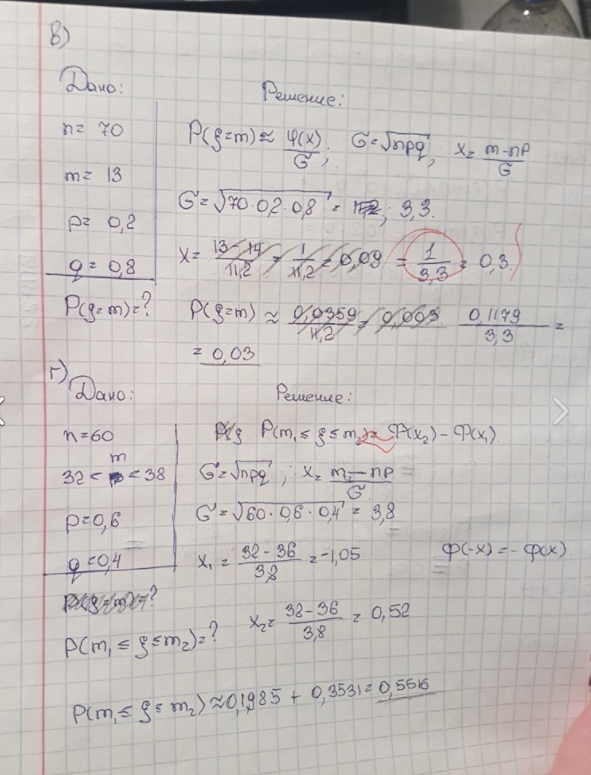 в)
Дано:
n = 70
m = 13
p = 0,2
q = 0,8
P(ξ=m)=?
Решение:
P(ξ=m) ≈ φ(x)/σ; σ=√npq; x = m-np/σ
σ = √70·0,2·0,8 = 3,3.
x = 13-14/11,2 = 1/11,2 = 0,09 = 1/3,3 = 0,3
P(ξ=m) ≈ 0,0359/11,2 = 0,003 0,1179/3,3 =
= 0,03
г)
Дано:
n=60
m
32 < < 38
p=0,6
q=0,4
P(m₁ ≤ ξ ≤ m₂)=?
Решение:
P(m₁ ≤ ξ ≤ m₂) ≈ Ф(x₂) - Ф(x₁)
σ = √npq; x = m - np/σ
σ = √60·0,6·0,4 = 3,8
x₁ = 32-36/3,8 = -1,05
φ(-x) = -φ(x)
x₂ = 38-36/3,8 = 0,52
P(m₁ ≤ ξ ≤ m₂) ≈ 0,1985 + 0,3531 = 0,5516